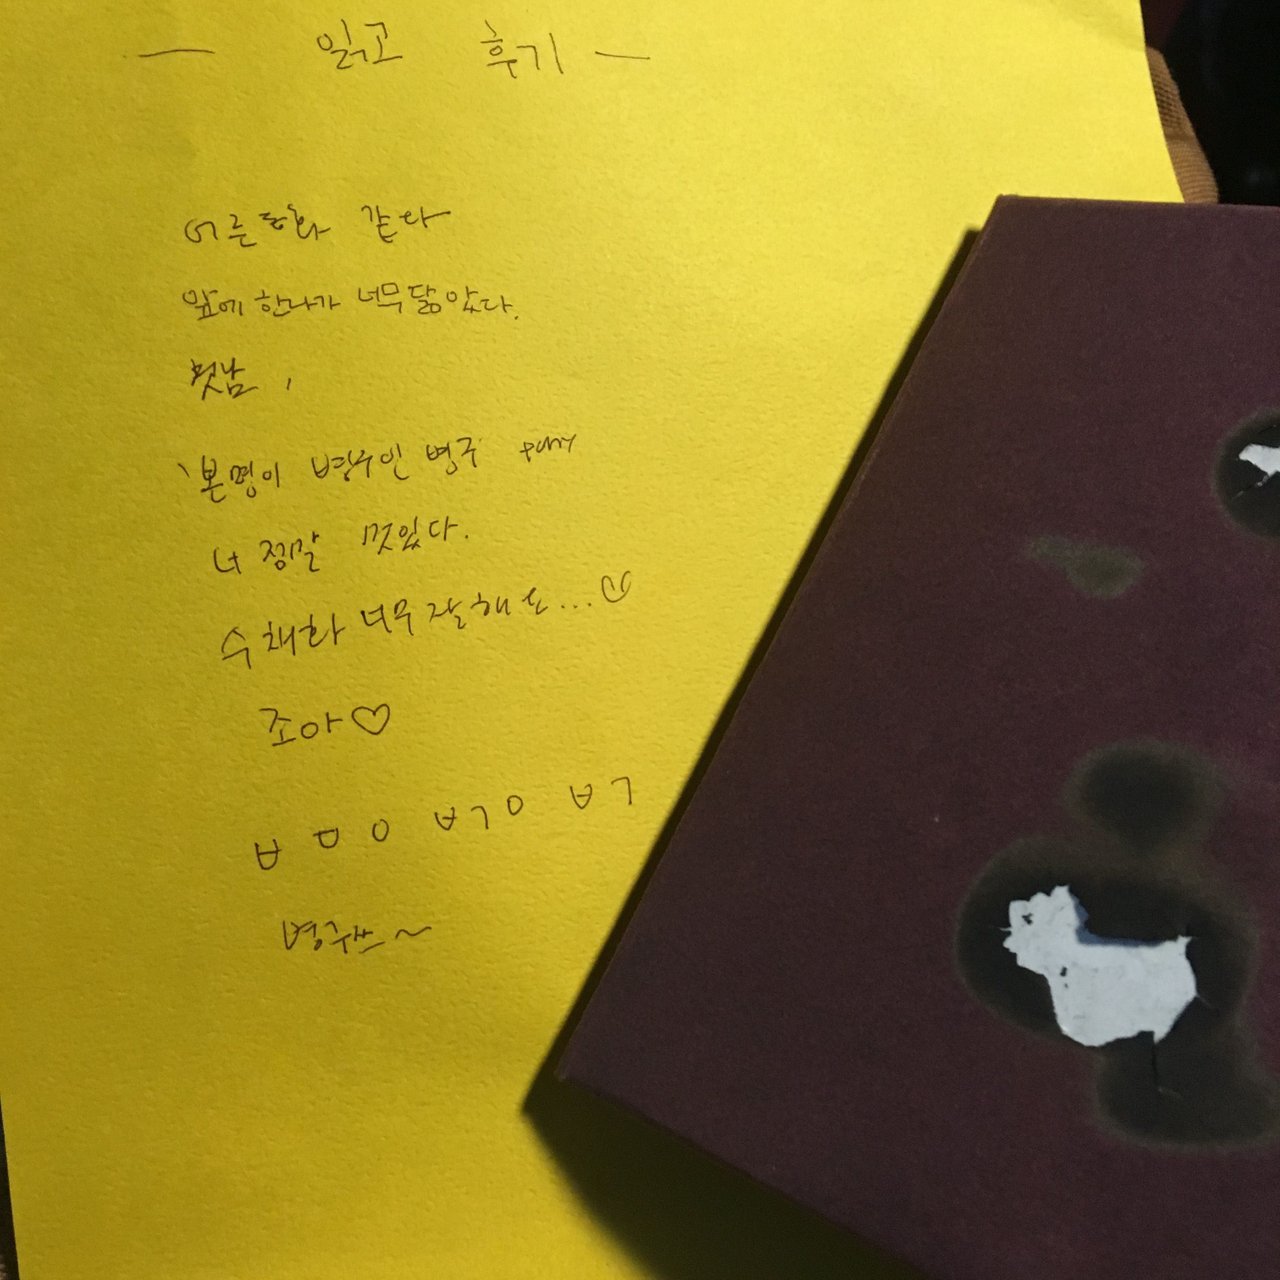 — 읽고 후기 —
어른동화 같다
앞에 한나가 너무 닮았다.
멋남,
본명이 병주인 병주
너 정말 멋있다.
수채화 너무 잘해요...
조아♡
ㅂ ㅁ ㅇ ㅂㄱㅇ ㅂㄱ
~